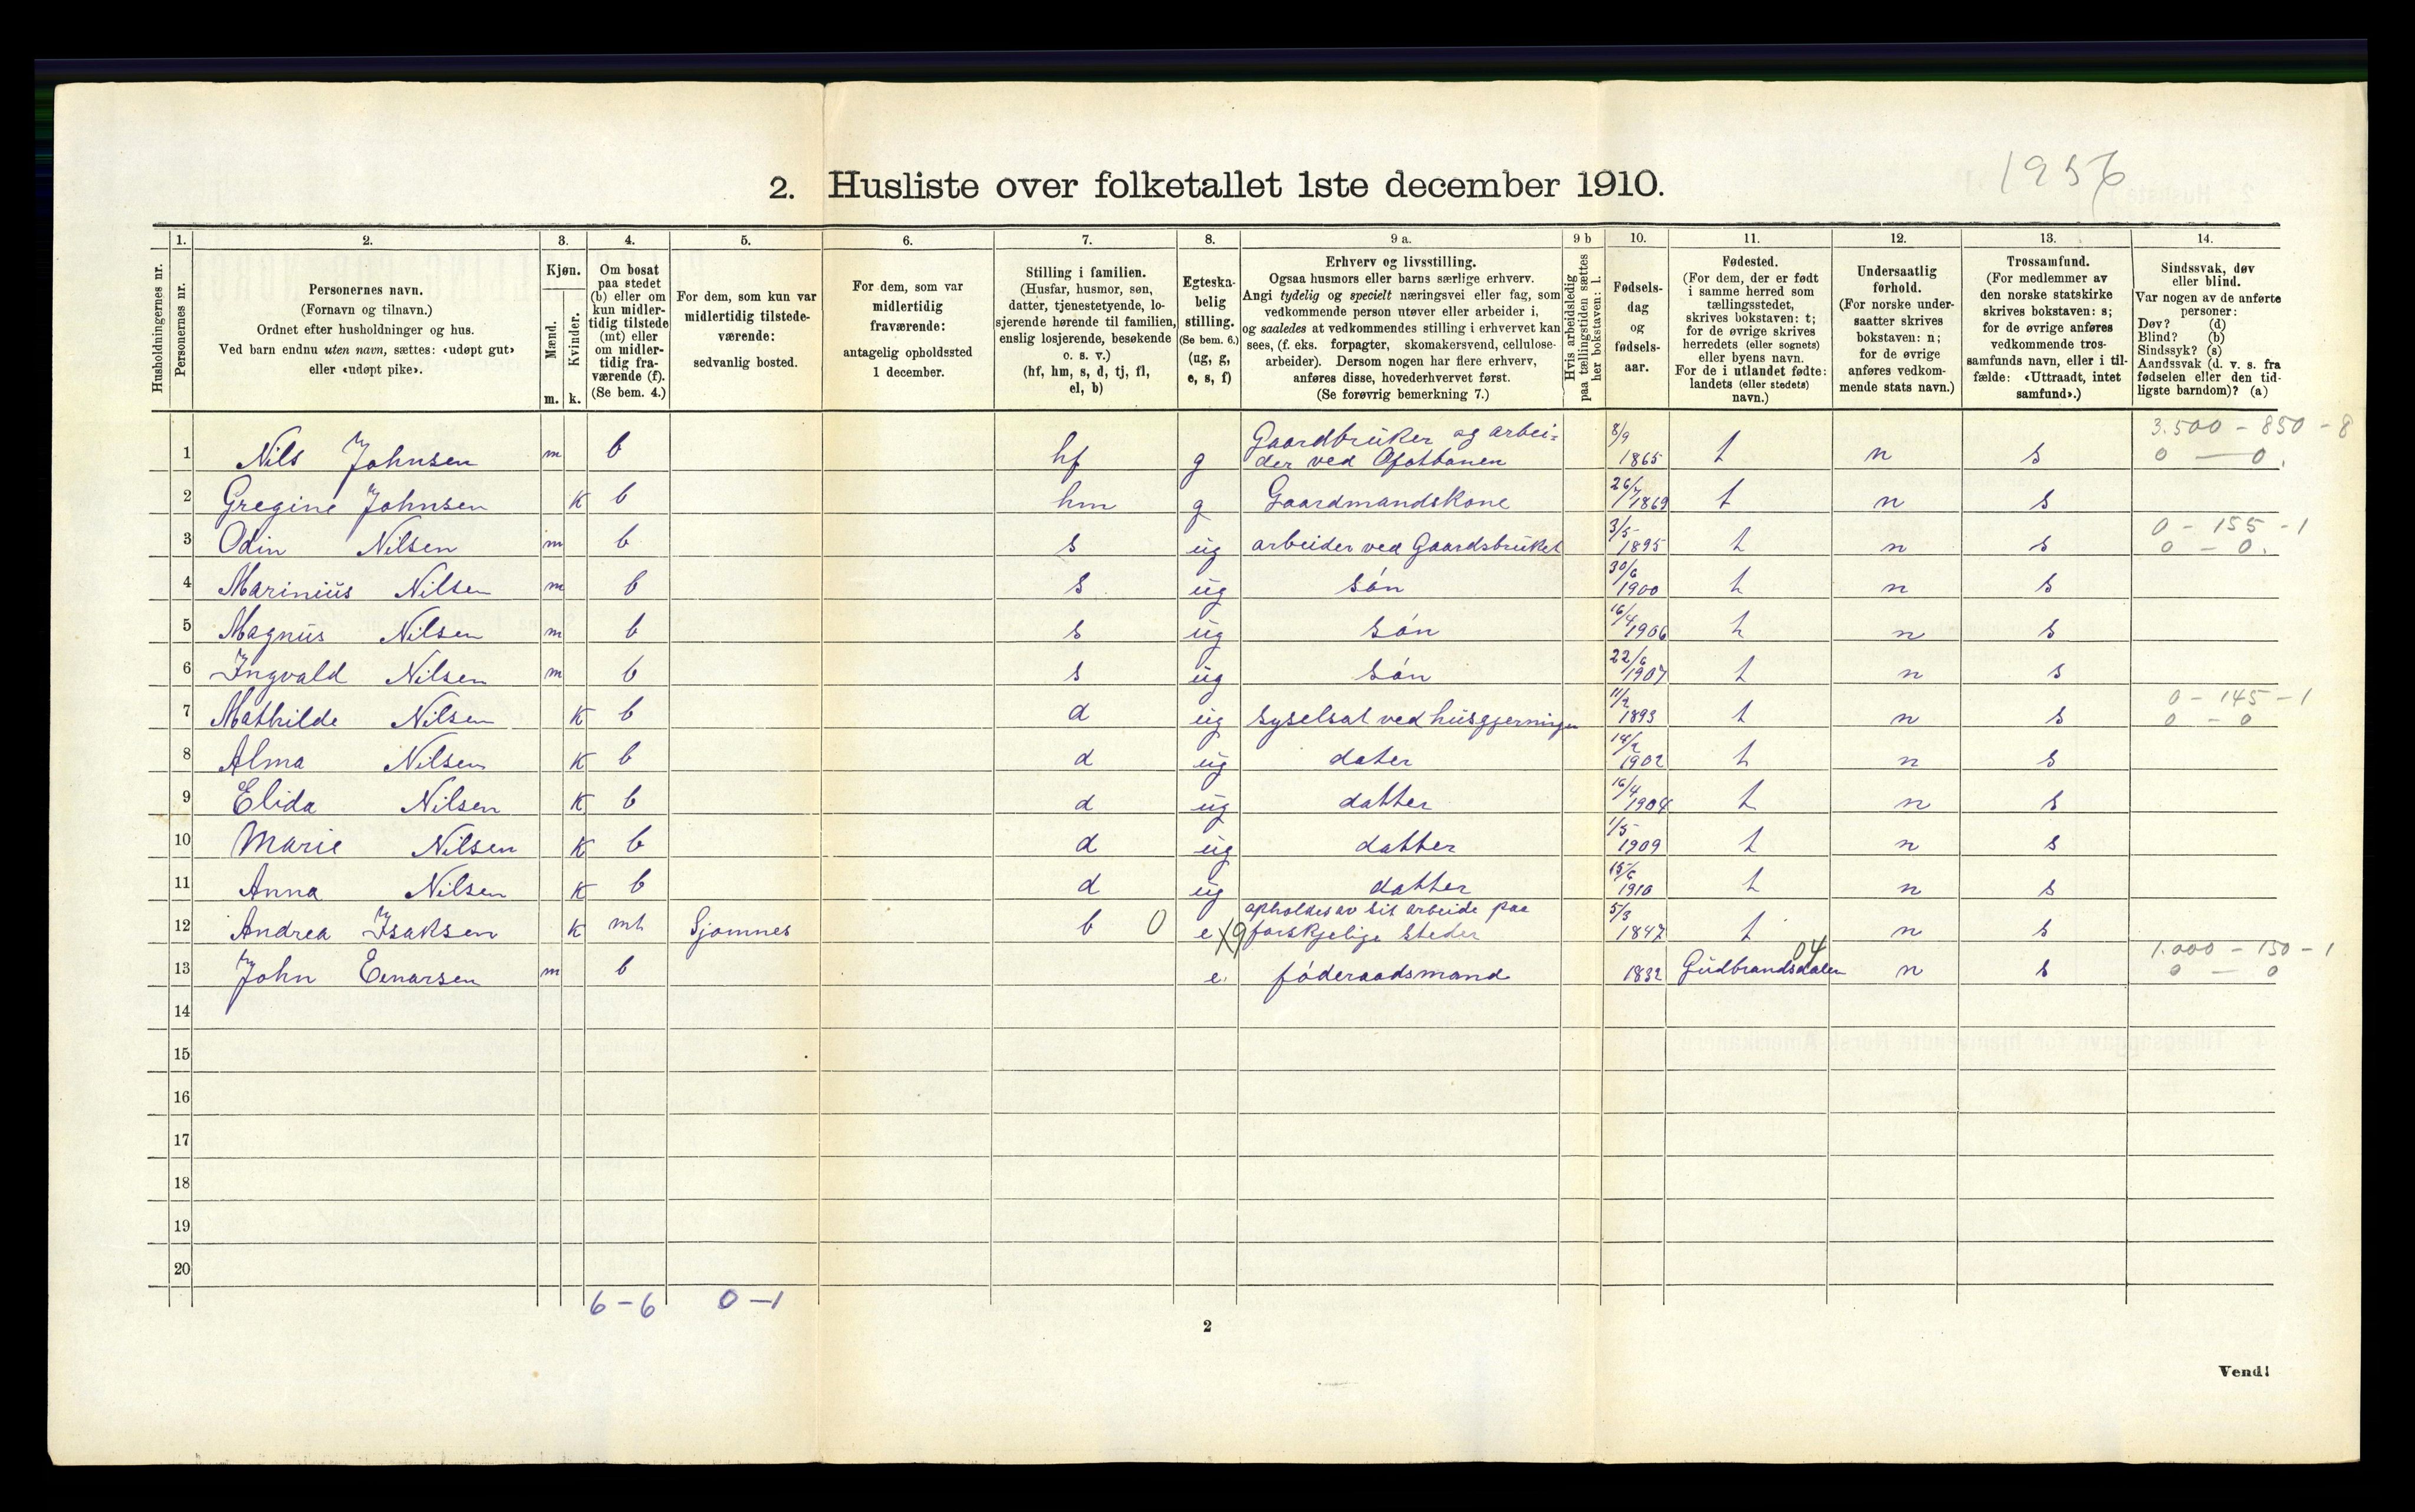 1956
2. Husliste over folketallet 1ste december 1910.
1. 2. 3. 4. 5. 6. 7. 8. 9 a. 9 b 10. 11. 12. 13. 14.
Husholdningernes nr.
Personernes nr.
Personernes navn.
(Fornavn og tilnavn.)
Ordnet efter husholdninger og hus.
Ved barn endnu uten navn, sættes: «udøpt gut»
eller «udøpt pike».
Kjøn.
Mænd.
Kvinder.
m. k.
Om bosat
paa stedet
(b) eller om
kun midler-
tidig tilstede
(mt) eller
om midler-
tidig fra-
værende (f).
(Se bem. 4.)
For dem, som kun var
midlertidig tilstede-
værende:
sedvanlig bosted.
For dem, som var
midlertidig
fraværende:
antagelig opholdssted
1 december.
Stilling i familien.
(Husfar, husmor, søn,
datter, tjenestetyende, lo-
sjerende hørende til familien,
enslig losjerende, besøkende
o. s. v.)
(hf, hm, s, d, tj, fl,
el, b)
Egteska-
belig
stilling.
(Se bem. 6.)
(ug, g,
e, s, f)
Erhverv og livsstilling.
Ogsaa husmors eller barns særlige erhverv.
Angi tydelig og specielt næringsvei eller fag, som
vedkommende person utøver eller arbeider i,
og saaledes at vedkommendes stilling i erhvervet kan
sees, (f. eks. forpagter, skomakersvend, cellulose-
arbeider). Dersom nogen har flere erhverv,
anføres disse, hovederhvervet først.
(Se forøvrig bemerkning 7.)
Hvis arbeidsledig
paa tællingstiden sættes
her bokstaven: l.
Fødsels-
dag
og
fødsels-
aar.
Fødested.
(For dem, der er født
i samme herred som
tællingsstedet,
skrives bokstaven: t;
for de øvrige skrives
herredets (eller sognets)
eller byens navn.
For de i utlandet fødte:
landets (eller stedets)
navn.)
Undersaatlig
forhold.
(For norske under-
saatter skrives
bokstaven: n;
for de øvrige
anføres vedkom-
mende stats navn.)
Trossamfund.
(For medlemmer av
den norske statskirke
skrives bokstaven: s;
for de øvrige anføres
vedkommende tros-
samfunds navn, eller i til-
fælde: «Uttraadt, intet
samfund».)
Sindssvak, døv
eller blind.
Var nogen av de anførte
personer:
Døv? (d)
Blind? (b)
Sindssyk? (s)
Aandssvak (d. v. s. fra
fødselen eller den tid-
ligste barndom)? (a)
1 Nils Johnsen m b hf g Gaardbruker og arbei-
der ved Ofotbanen 8/9 1865 t n s 3.500 - 850 - 8
0 - 0.
2 Gregine Johnsen k b hm g Gaardmandskone 26/7 1869 t n s
3 Odin Nilsen m b s ug arbeider ved Gaardsbruket 3/5 1895 t n s 0 - 155 - 1
0 - 0.
4 Marinius Nilsen m b s ug søn 30/6 1900 t n s
5 Magnus Nilsen m b s ug søn 16/4 1906 t n s
6 Ingvald Nilsen m b s ug søn 22/6 1907 t n s
7 Mathilde Nilsen k b d ug syselsat ved husgjerninger 11/2 1893 t n s 0 - 145 - 1
0 - 0
8 Alma Nilsen k b d ug dater 14/2 1902 t n s
9 Elida Nilsen k b d ug datter 16/4 1904 t n s
10 Marie Nilsen k b d ug datter 1/5 1909 t n s
11 Anna Nilsen k b d ug datter 15/6 1910 t n s
12 Andrea Isaksen k mt Sjomnes b 0 e X9 opholdes av sit arbeide paa
forskjelige steder 5/3 1847 t n s
13 John Eenarsen m b e. føderaadsmand 1832 Gudbrandsdalen 04 n s 1.000 - 150 - 1
0 - 0
14
15
16
17
18
19
20
6 - 6 0 - 1
2
Vend!